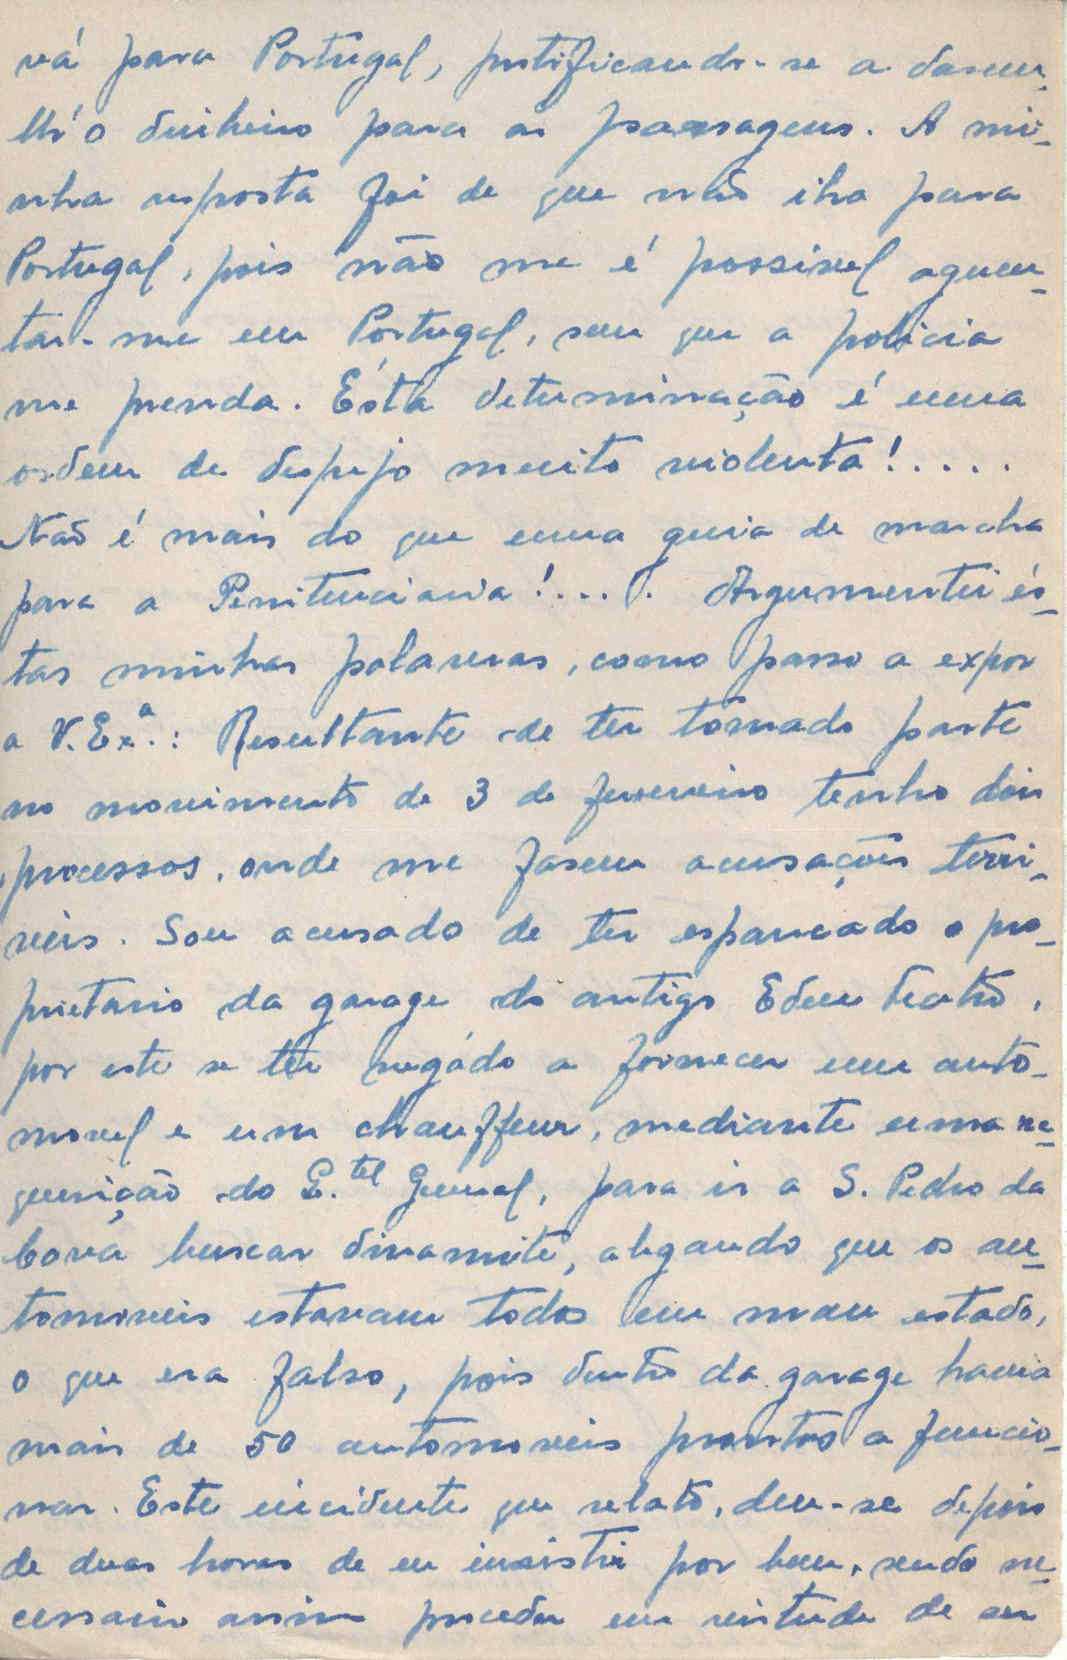 vá para Portugal, prontificando-se a darem-
lh'o dinheiro para as passagens. A mi-
nha resposta foi de que não iha para
Portugal, pois não me é possivel aguen-
tar-me em Portugal, sem que a policia
me prenda. Ésta determinação é uma
ordem de despejo muito violenta!.....
Não é mais do que uma guia de marcha
para a Penitenciaria!.... Argumentei és-
tas minhas palavras, como passo a expor
a V. Exª.: Resultante de ter tomado parte
no movimento de 3 de fevereiro tenho dois
processos, onde me fasem acusações terri-
veis. Sou acusado de ter espancado o pro-
prietario da garage do antigo Eden teatro,
por este se ter negádo a fornecer um auto-
movel e um chauffeur, mediante uma re-
quisição do E.tel General, para ir a S. Pedro da
Cova buscar dinamite, alegando que os au-
tomoveis estavam todos em mau estado,
o que era falso, pois dentro da garage havia
mais de 50 automoveis prontos a funcio-
nar. Este incidente que relato, deu-se depois
de duas horas de eu insistir por bem, sendo ne-
cessario assim proceder em virtude de ser